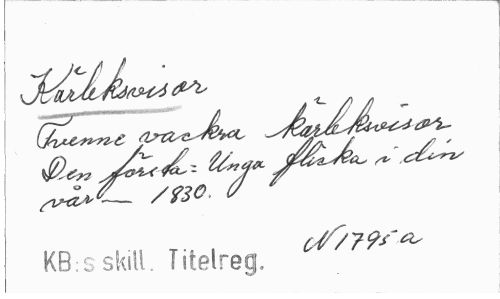 Kärleksvisor
Tvenne vackra kärleksvisor
Den första = Unga flicka i din
vår — 1830.
N 1795 a
KB:s skill. Titelreg.